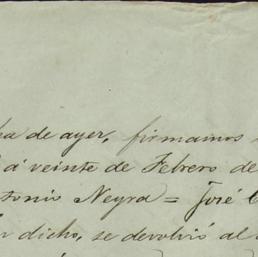 de ayer, firmamos
á veinte de Febrero de
Neyra = José
dicho, se devolvió al